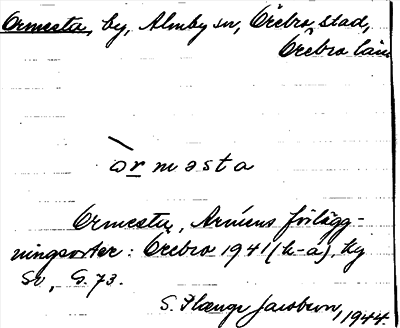 Ormesta, by, Almby sn, Örebro stad,
Örebro län
òrməsta
Ormesta, Arméns förlägg-
ningsorter: Örebro 1941 (h-å), Hg
Sv, S. 73.
S. Hænge Jacobson, 1944.